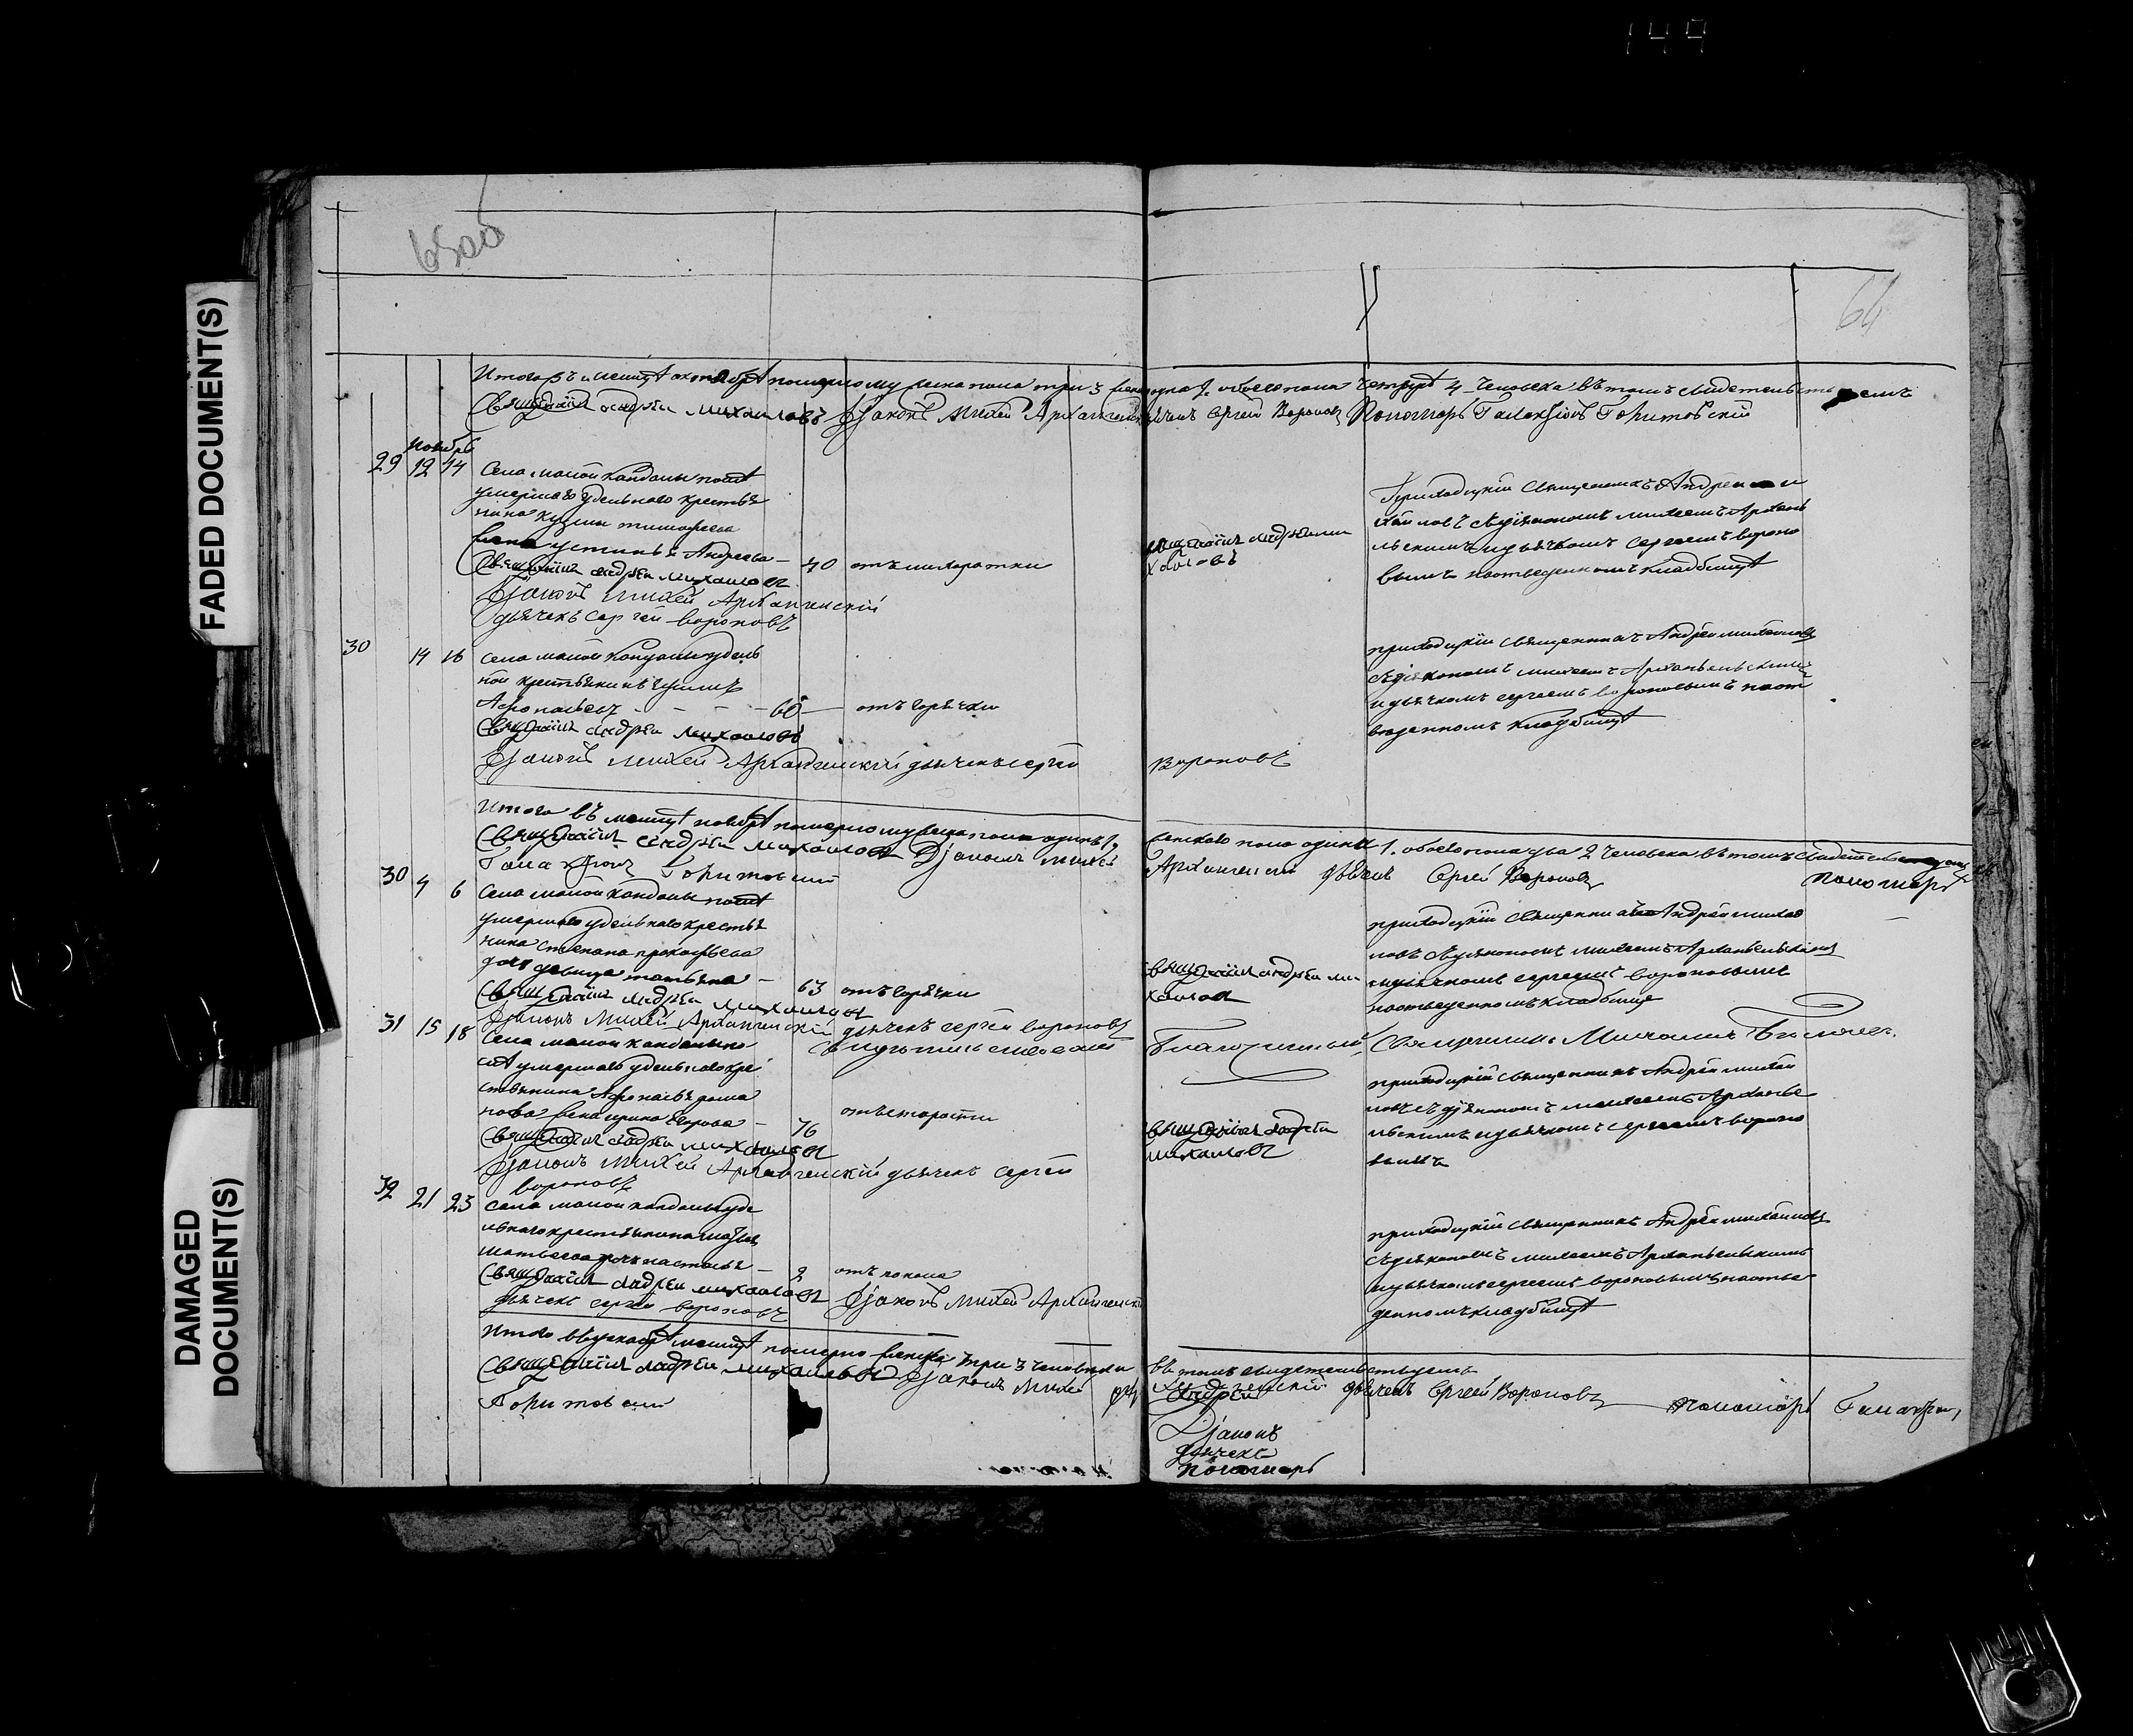 149
6500
64
Итого въ месяцѣ октобрѣ померло мужеска пола три 3 женска 1. обоего пола четыре 4 человека въ томъ свидетельствуемъ
Священникъ Андрей Михаиловъ Дїаконъ Михей Архангельскїй дьячекъ Сергей Вороновъ Пономарь Галактїонъ Горитовскїй
Ноябрь
29 12 14 Села малой кандалы послѣ
умершаго удельнаго крестья
нина кузмы тимофеева
жена устинья Андреева – 40 отъ лихоратки
Священникъ Андрей Михаиловъ
Дїаконъ Михей Архангелскїй
дьячекъ Сергей вороновъ
Священникъ Андрей Ми
хаиловъ
Приходцкїй священникъ Андрей ми
хайловъ съ дїякономъ михеемъ Арханге
льскимъ и дьячкомъ сергеемъ вороно
вымъ на отведенномъ кладбищѣ
30 14 16 Села малой кандалы удель
ной крестьянинъ
Афонасьевъ – – – 60 – отъ горячки
Священникъ Андрей Михаиловъ
Дїаконъ Михей Архангелскїй дьячекъ сергей
Вороновъ
приходцкїй священникъ Андрей михайловъ
съ дїякономъ михеемъ Архангельскимъ
и дьячкомъ сергеемъ вороновымъ на от
веденномъ кладбищѣ
Итого въ месяцѣ ноябрѣ померло мужеска пола одинъ 1,
женскаго пола одинъ 1. обоего пола два 2 человека въ томъ свидетельствуемъ
Священникъ Андрей Михаиловъ Дїаконъ Михей
Архангелскїй дьячекъ Сергей Вороновъ Пономарь
Галактїонъ Горитовскїй
30 4 6 Села малой кандалы послѣ
умершаго удельнаго крестья
нина степана прокофьева
дочь девица татьяна – 63 отъ горячки
Священникъ Андрей Михаиловъ
Дїаконъ Михей Архангелскїй дьячекъ сергей вороновъ
Священникъ Андрей Ми
хаиловъ
приходцкїй священникъ Андрей михай
ловъ съ дїякономъ михеемъ Архангельскимъ
и дьячкомъ сергеемъ вороновымъ
на отведенномъ кладбище
Свидѣтельствовалъ Благочинный Священникъ Михаилъ
31 15 18 Села малой кандалы по
слѣ умершаго удельнаго кре
стьянина Афонасья рома
нова жена ирина – 76 отъ старости
Священникъ Андрей Михаиловъ
Дїаконъ Михей Архангелскїй дьячекъ Сергей
вороновъ
Священникъ Андрей
Михаиловъ
приходцкїй священникъ Андрей михай
ловъ съ дїякономъ михеемъ Арханге
льскимъ и дьячкомъ сергеемъ вороно
вымъ
32 21 23 Села малой кандалы уде
льнаго крестьянина
матвеева дочь настасья – 2 отъ поноса
Священникъ Андрей Михаиловъ Дїаконъ Михей Архангелскїй
дьячекъ сергей вороновъ
приходцкїй священникъ Андрей михайловъ
съ дїякономъ михеемъ Архангельскимъ
и дьячкомъ сергеемъ вороновымъ на отве
денномъ кладбищѣ
Итого въ декабрѣ месяцѣ померло женска три 3 человека
въ томъ свидетельствуемъ
Священникъ Андрей Михаиловъ Дїаконъ Михей
дьячекъ Сергей Вороновъ пономарь Галактїонъ
Горитовскїй
Андрей
Дїаконъ
дьячекъ
пономарь
FADED DOCUMENT(S)
DAMAGED
DOCUMENT(S)